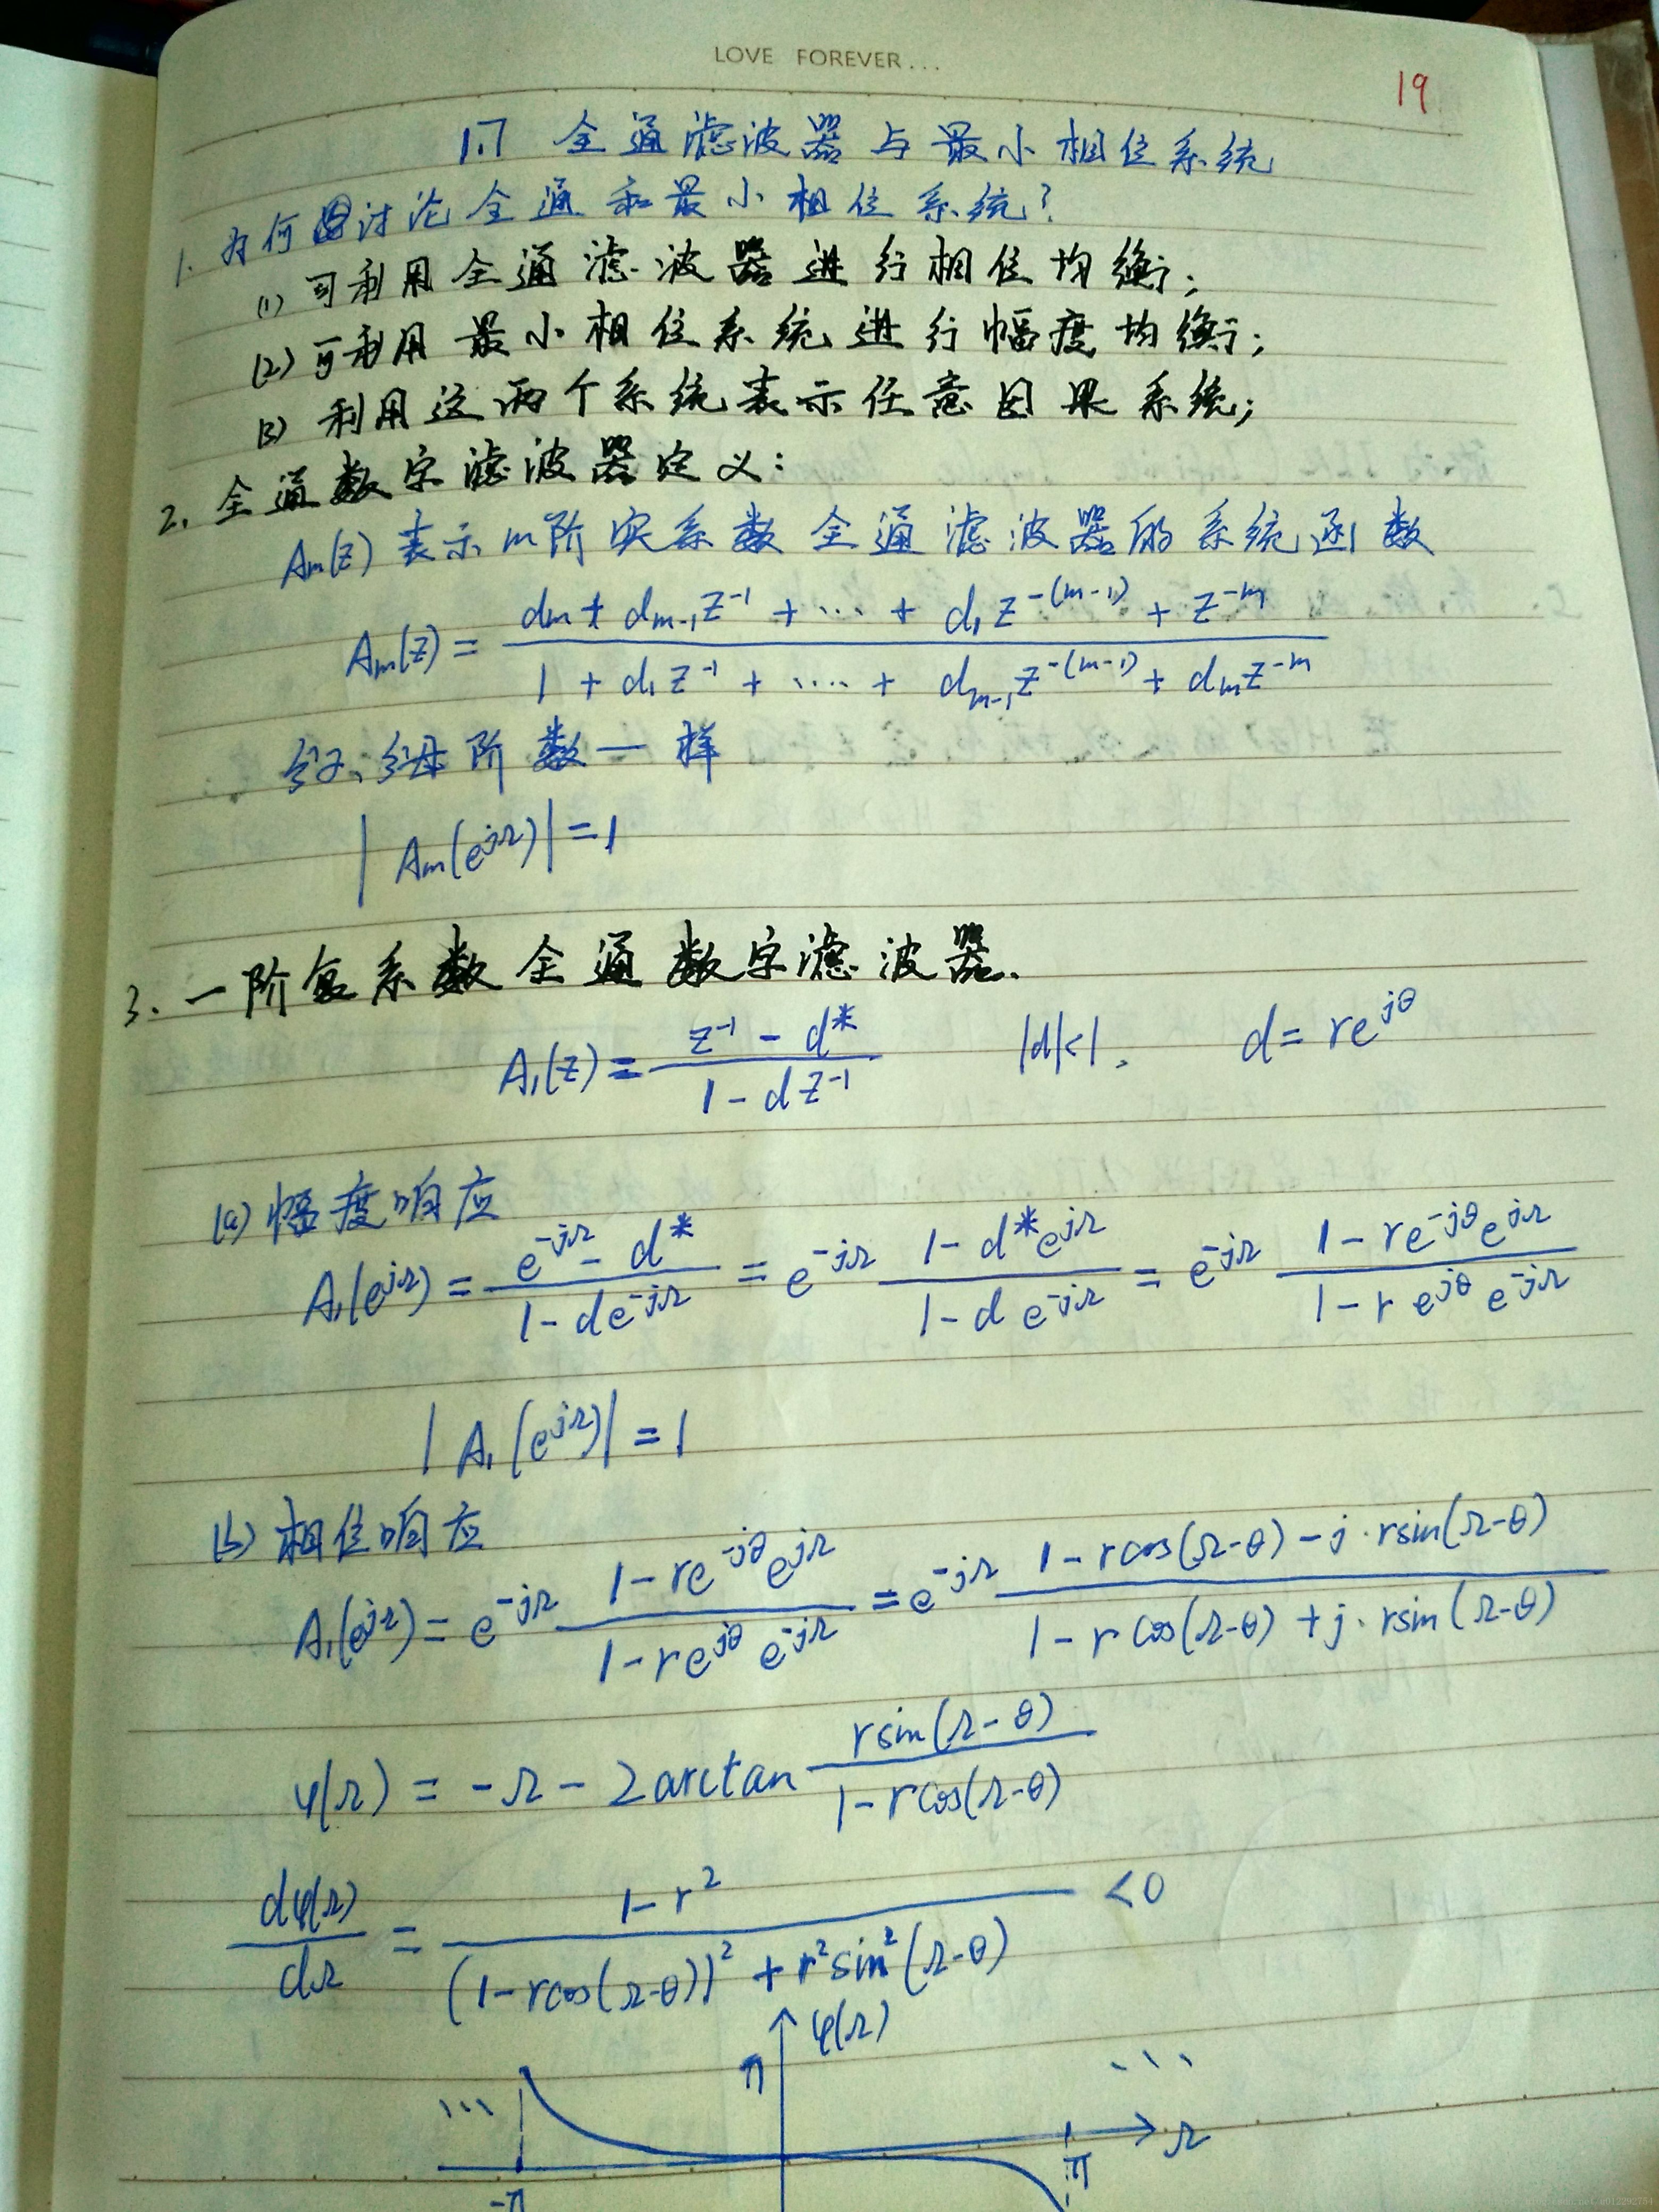 LOVE FOREVER...
19
1.7 全通滤波器与最小相位系统
1. 为何讨论全通和最小相位系统?
(1) 可利用全通滤波器进行相位均衡;
(2) 可利用最小相位系统进行幅度均衡;
(3) 利用这两个系统表示任意因果系统;
2. 全通数字滤波器定义:
Am(z) 表示m阶实系数全通滤波器的系统函数
Am(z) = (dm + dm-1 z^-1 + ... + d1 z^-(m-1) + z^-m) / (1 + d1 z^-1 + .... + dm-1 z^-(m-1) + dm z^-m)
分子、分母阶数一样
|Am(e^jΩ)| = 1
3. 一阶复系数全通数字滤波器.
A1(z) = (z^-1 - d*) / (1 - dz^-1) |d|<1, d = re^jθ
(a) 幅度响应
A1(e^jΩ) = (e^-jΩ - d*) / (1 - de^-jΩ) = e^-jΩ (1 - d*e^jΩ) / (1 - de^-jΩ) = e^-jΩ (1 - re^-jθ e^jΩ) / (1 - re^jθ e^-jΩ)
|A1(e^jΩ)| = 1
(b) 相位响应
A1(e^jΩ) = e^-jΩ (1 - re^-jθ e^jΩ) / (1 - re^jθ e^-jΩ) = e^-jΩ (1 - rcos(Ω-θ) - j·rsin(Ω-θ)) / (1 - rcos(Ω-θ) + j·rsin(Ω-θ))
φ(Ω) = -Ω - 2arctan (rsin(Ω-θ)) / (1 - rcos(Ω-θ))
dφ(Ω)/dΩ = (1 - r^2) / ((1 - rcos(Ω-θ))^2 + r^2 sin^2(Ω-θ)) < 0
φ(Ω)
π
...
...
Ω
-π
π